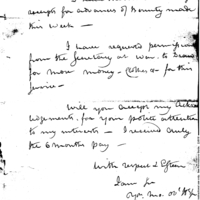 receipts for advances of Bounty made
this week —
I have requested permission
from the Secretary at War. to draw
for more money — for this
service —
Will you accept my acknow
ledgements for your polite attention
to my interests — I received only
the 6 months pay —
With respect & Esteem
I am Sir